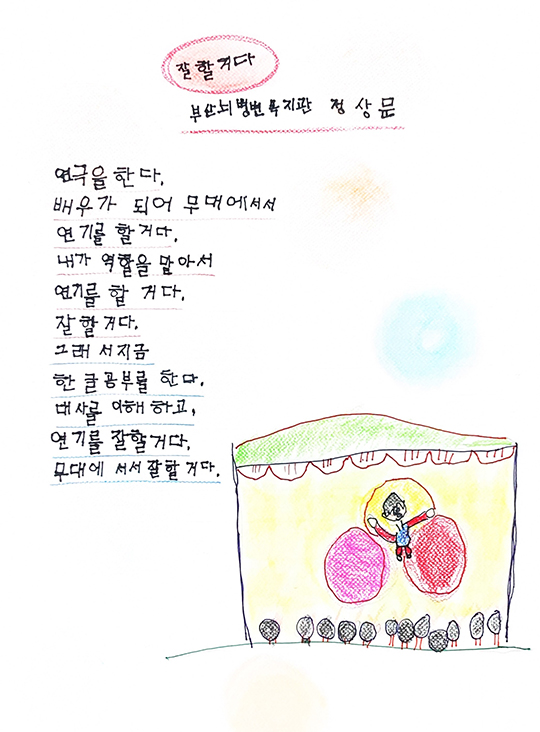 잘할거다
부산뇌병변복지관 정상문
연극을 한다.
배우가 되어 무대에서서
연기를 할거다.
내가 역할을 맡아서
연기를 할 거다.
잘할거다.
그래서지금
한글공부를 한다.
대사를 이해하고,
연기를 잘할거다.
무대에 서서잘할거다.